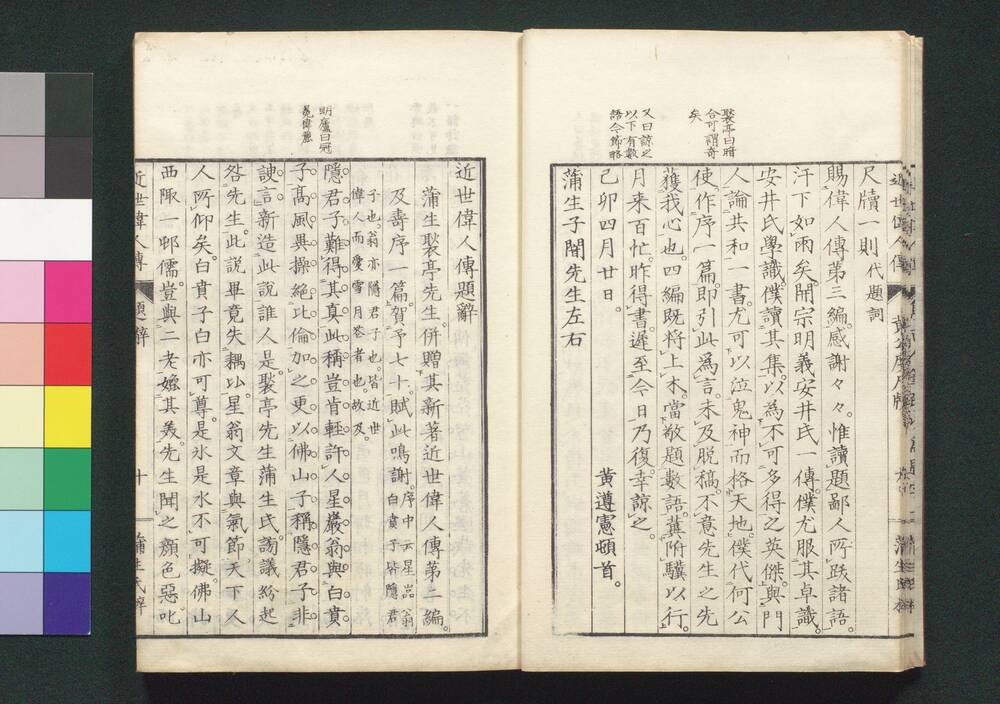 尺牘一則代題詞
賜偉人傳第三編。感謝々々。惟讀題鄙人所跋諸語。
汗下如雨矣。開宗明義安井氏一傳。僕尤服其卓識。
安井氏學識。僕讀其集。以為不可多得之英傑。與門
人論共和一書。尤可以泣鬼神而格天地。僕代何公
使作序一篇。即引此為言。未及脱稿。不意先生之先
獲我心也。四編既將上木。當敬題數語。冀附驥以行。
月来百忙。昨得書。遲至今日乃復。幸諒之。
己卯四月廿日
黄遵憲頓首。
蒲生子闇先生左右
聚亭曰暗
合可謂奇
矣
又曰諒之
以下有數
語今節略
近世偉人傳題辭
蒲生聚亭先生。併贈其新著近世偉人傳第二編。
及壽序一篇。賀予七十。賦此鳴謝。序中云星岩翁白賁子皆隱君
子也。翁亦隨君子也。皆近世
偉人而愛雪月苍者也。故及。
隱君子難得其真。此稱豈肯輕許人。星巖翁與白賁
子。高風異操絶比倫。加之更以佛山子。稱隱君子非
諛言。新造此説誰人是。聚亭先生蒲生氏。謗議紛起
咎先生。此説畢竟失耦以。星翁文章與氣節。天下人
人所仰矣。白賁子白亦可尊。是氷是水不可擬。佛山
西陬一邨儒。豈與二老媲其美。先生聞之顔色惡。叱
明廬曰冠
冕偉麗
近世偉人傳
題辭
十
蒲生氏梓